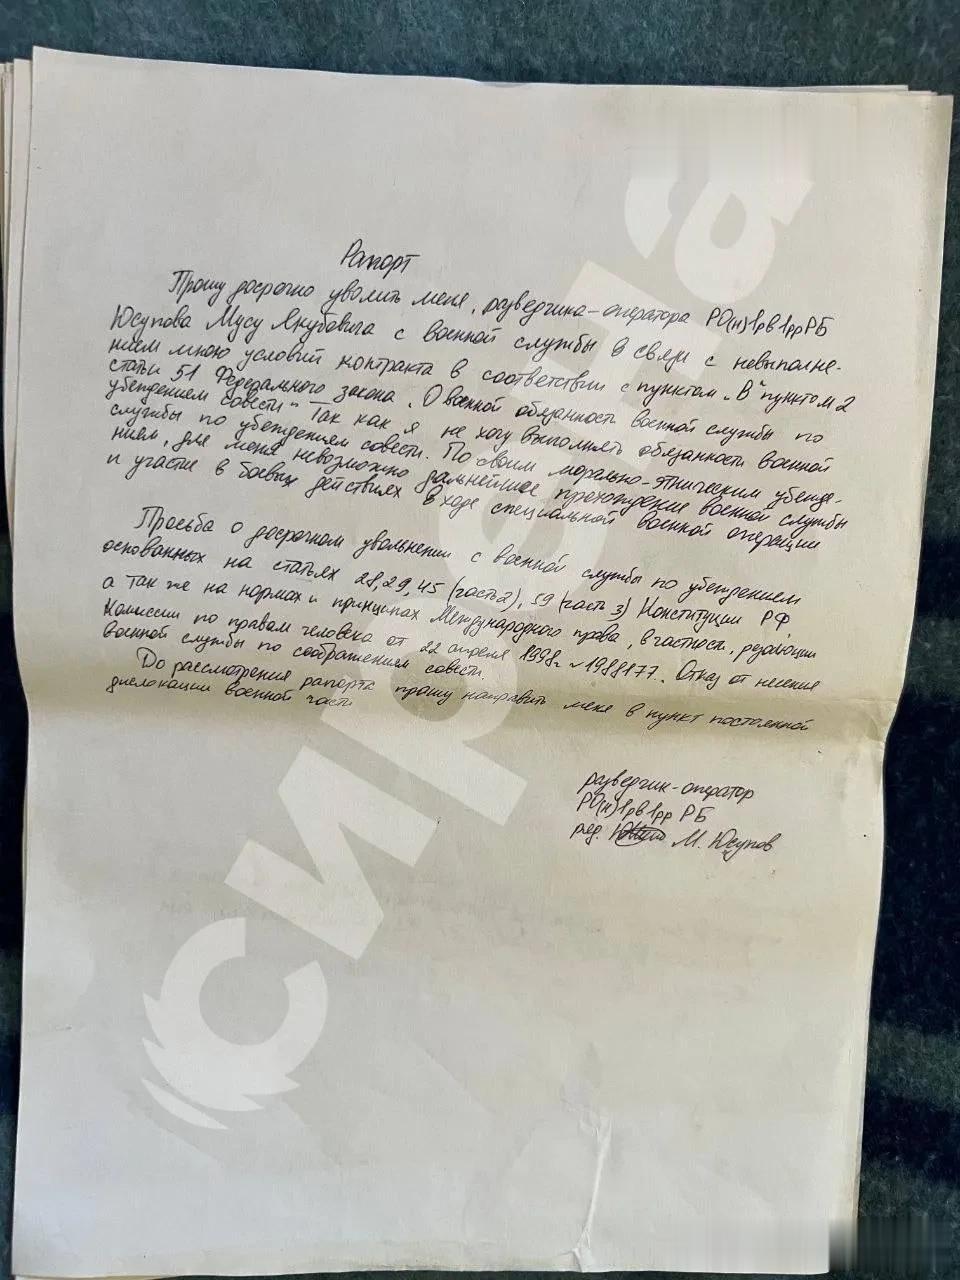 Рапорт
Прошу досрочно уволить меня, разведчика-оператора РО(н)1рв1ррРБ
Юсупова Мусу Якубовича с военной службы в связи с невыполне-
нием мною условий контракта в соответствии с пунктом „В" пунктом 2
статьи 51 Федерального закона „О военной обязанности военной службы по
убеждением совести" Так как я не хочу выполнять обязанности военной
службы по убеждением совести. По своим морально-этническим убежде-
ниям, для меня невозможно дальнейшее прохождение военной службы
и участие в боевых действиях в ходе специальной военной операции
Просьба о досрочном увольнении с военной службы по убеждением
основанных на статьях 28,29,45 (часть 2), 59 (часть 3) Конституции РФ,
а так же на нормах и принципах Международного права, в частности, резолюции
Комиссии по правам человека от 22 апреля 1998г №1988177. Отказ от несения
военной службы по соображением совести.
До рассмотрения рапорта прошу направить меня в пункт постоянной
дислокации военной части
разведчик-оператор
РО(н)1рв1рр РБ
ряд. М. Юсупов
сирена